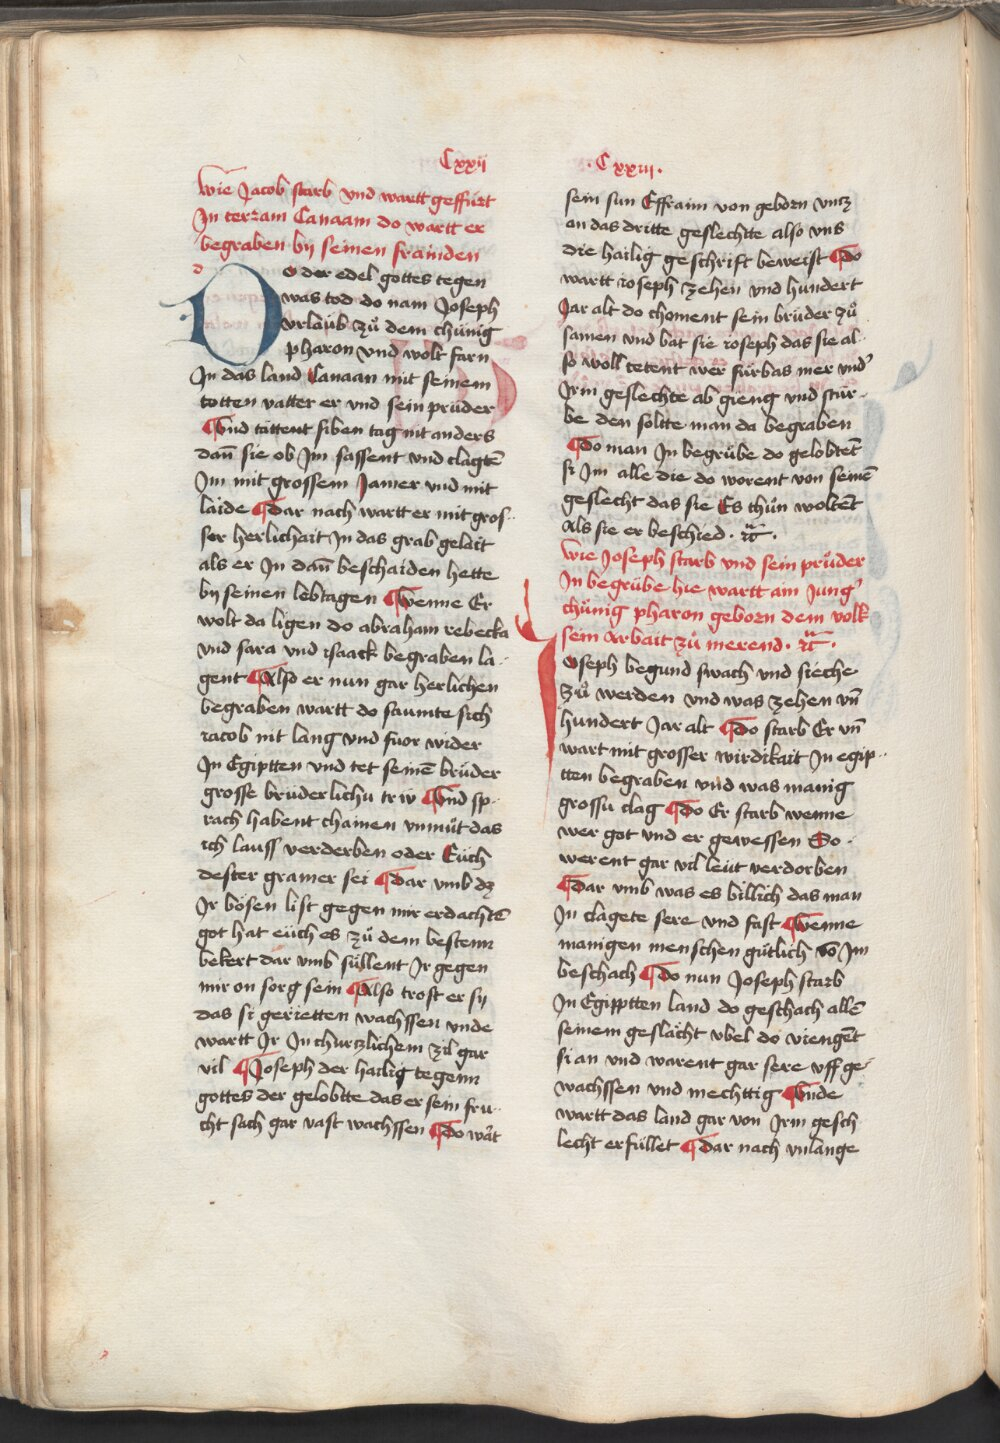 Cxxij
Wie Jacob starb vnd wartt geffürt
In terram Canaam do wartt er
begraben bij seinen frainden
Do der edel gottes tegen
was tod do nam Joseph
vrlaub zů dem chünig
pharon vnd wolt farn
In das land Canaan mit seinem
totten vatter er vnd sein prüder
Vnd tättent siben tag nit anders
dañ sie ob Jm sassent vnd clagtē
Jm mit grossem Jamer vnd mit
laide Dar nach wartt er mit gros-
ser herlichait In das grab gelait
als er In dañ beschaiden hette
bij seinen lebtagen Wenne Er
wolt da ligen do abraham rebecka
vnd sara vnd ysaack begraben la-
gent Also er nun gar herlichen
begraben wartt do saumte sich
iacob nit lang vnd fuor wider
In Egiptten vnd tet seinē brüder
grosse brüderlichu trw Vnd sp-
rach habent chainen vnmüt das
ich lauss verderben oder Euch
dester gramer sei Dar vmb dz
Jr bösen list gegen mir erdachtē
got hat eüch es zü dem bestenn
bekert dar vmb süllent Jr gegen
mir on sorg sein Also trost er sy
das si gerietten wachssen vnde
wartt Jr In churczlichem zil gar
vil Joseph der hailig tegenn
gottes der gelobtte das er sein fru-
cht sach gar vast wachssen Do wart
Cxxiij
sein sun Effraim von geborn vntz
an das dritte geslechtte also vns
die hailig geschrift beweist Do
wartt ioseph zehen vnd hundert
Jar alt do choment sein brüder zů
samen vnd bat sie ioseph das sie al-
so woll tetent wer fürbas mer vnd'
Jrm geslechte ab gieng vnd stür-
be den soltte man da begraben
Do man In begrübe do gelobtēt
si Jm alle die do worent von seinē
geslecht das sie Es thün woltēt
Als sie er beschied . rc .
Wie Joseph starb vnd sein prüder
In begrübe hie wartt ain Jung'
chünig pharon geborn dem volk
sein Arbait zü merend . rc .
Joseph begund swach vnd sieche
zů werden vnd was zehen vñ
hundert Jar alt Do starb Er vñ
wart mit grosser wirdikait In egip-
tten begraben vnd was manig
grossu clag Do Er starb wenne
wer got vnd er gewessen So
werent gar vil leut verdorben
Dar vmb was es billich das man
In clagete sere vnd fast Wenne
manigen menschen gütlich võ Jm
beschach Do nun Joseph starb
In Egipptten land do geschach allē
seinem geslächt vbel do viengēt
si an vnd warent gar sere vff ge-
wachssen vnd mechttig Vnde
wartt das land gar von Jrm gesch
lecht erfüllet Dar nach vnlange